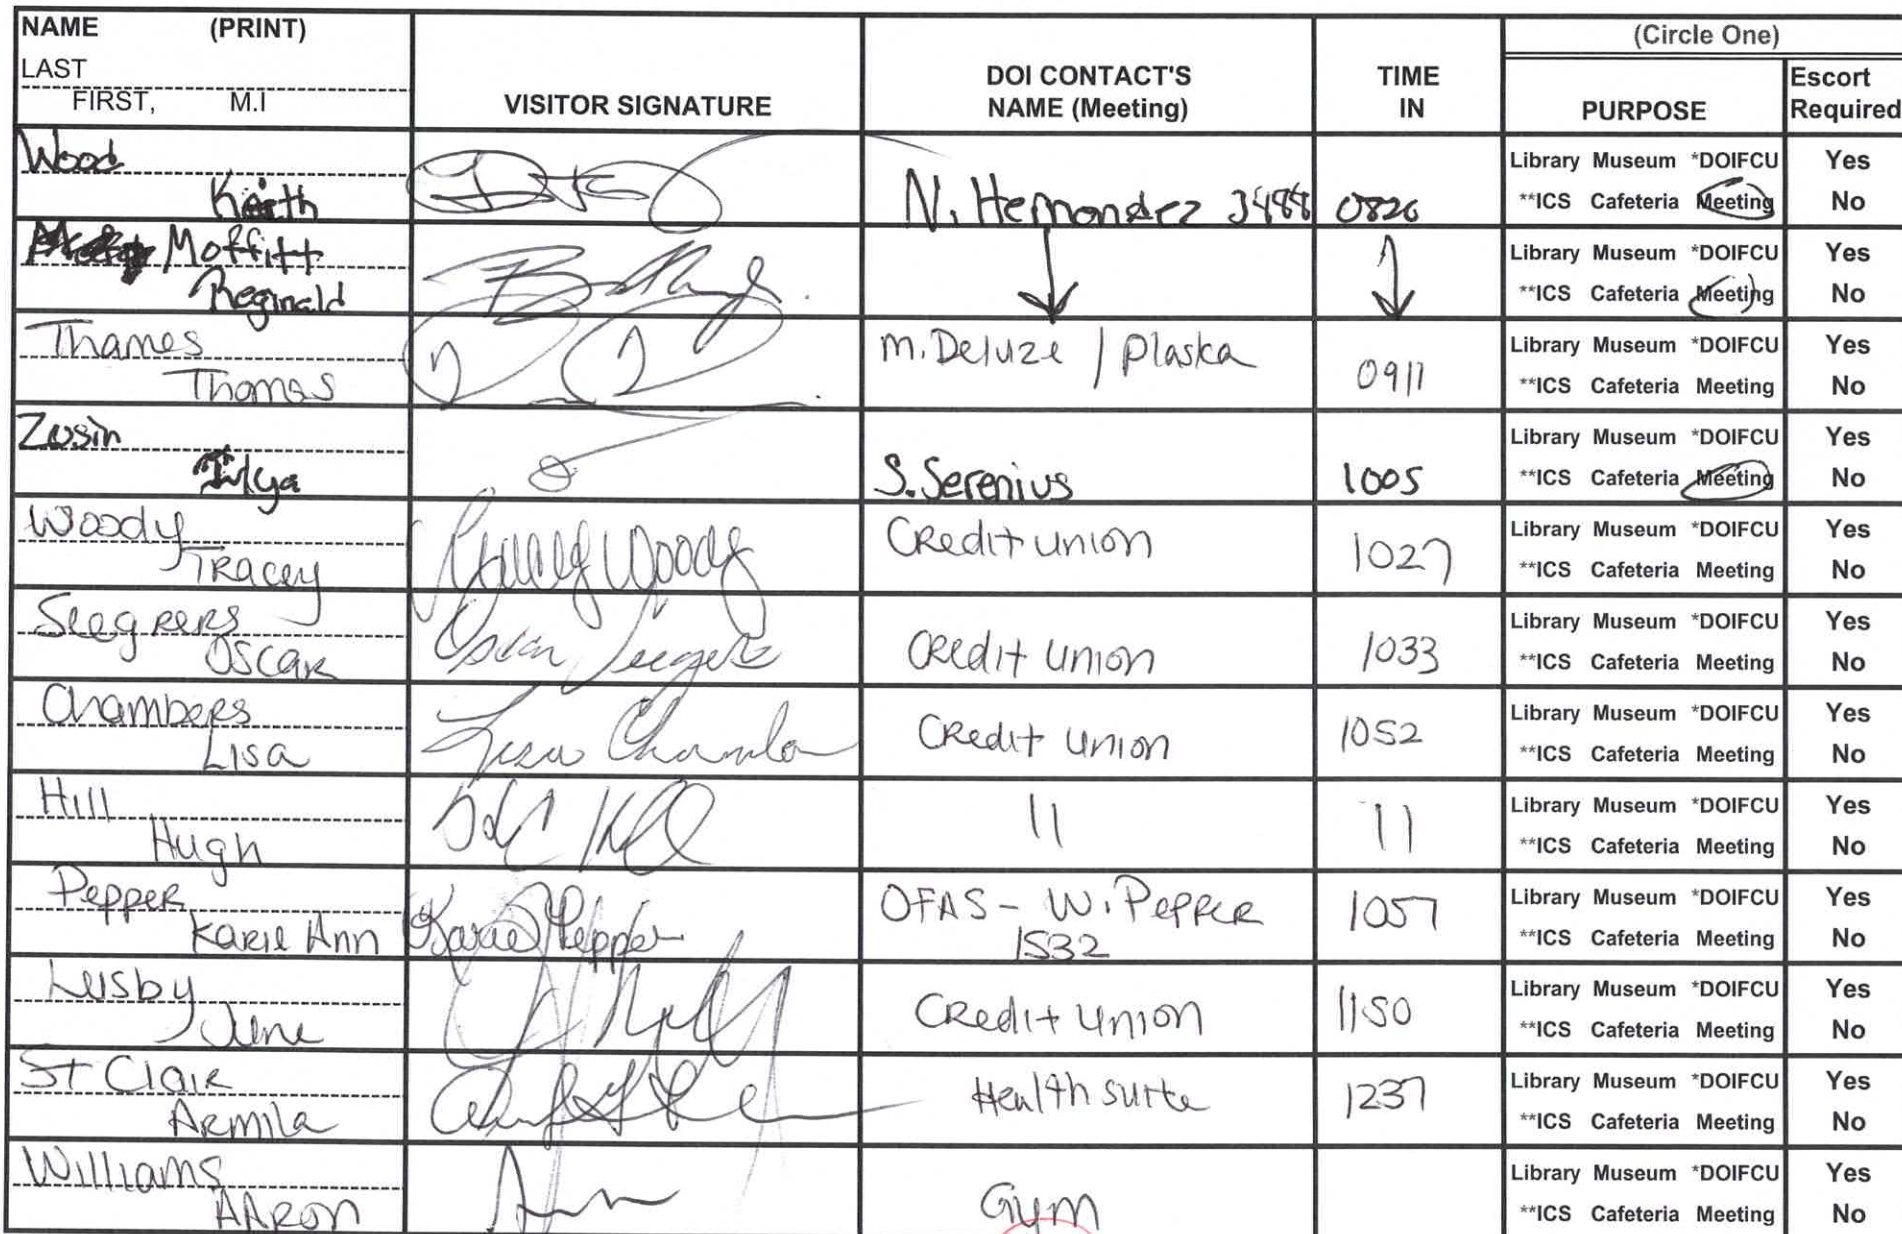 NAME (PRINT)
LAST
FIRST, M.I
VISITOR SIGNATURE
DOI CONTACT'S
NAME (Meeting)
TIME
IN
(Circle One)
PURPOSE
Escort
Required
Wood
Keith
N. Hernandez 3488 0820
Library Museum *DOIFCU Yes
**ICS Cafeteria Meeting No
Moffitt
Reginald
Library Museum *DOIFCU Yes
**ICS Cafeteria Meeting No
Thames
Thomas
M. Deluze / Plaska
0911
Library Museum *DOIFCU Yes
**ICS Cafeteria Meeting No
Zusin
Ilya
S. Serenius 1005
Library Museum *DOIFCU Yes
**ICS Cafeteria Meeting No
Woody
Tracey
Tracey Woody
Credit union 1027
Library Museum *DOIFCU Yes
**ICS Cafeteria Meeting No
Seegrers
Oscar
Oscar Seegers
Credit union 1033
Library Museum *DOIFCU Yes
**ICS Cafeteria Meeting No
Chambers
Lisa
Lisa Chambers
Credit union 1052
Library Museum *DOIFCU Yes
**ICS Cafeteria Meeting No
Hill
Hugh
11 11
Library Museum *DOIFCU Yes
**ICS Cafeteria Meeting No
Pepper
Karie Ann
Karie Pepper
OFAS - W. Pepper 1057
1532
Library Museum *DOIFCU Yes
**ICS Cafeteria Meeting No
Lusby
June
Credit union 1150
Library Museum *DOIFCU Yes
**ICS Cafeteria Meeting No
St Clair
Armila
Health suite 1237
Library Museum *DOIFCU Yes
**ICS Cafeteria Meeting No
Williams
AAron
Gym
Library Museum *DOIFCU Yes
**ICS Cafeteria Meeting No